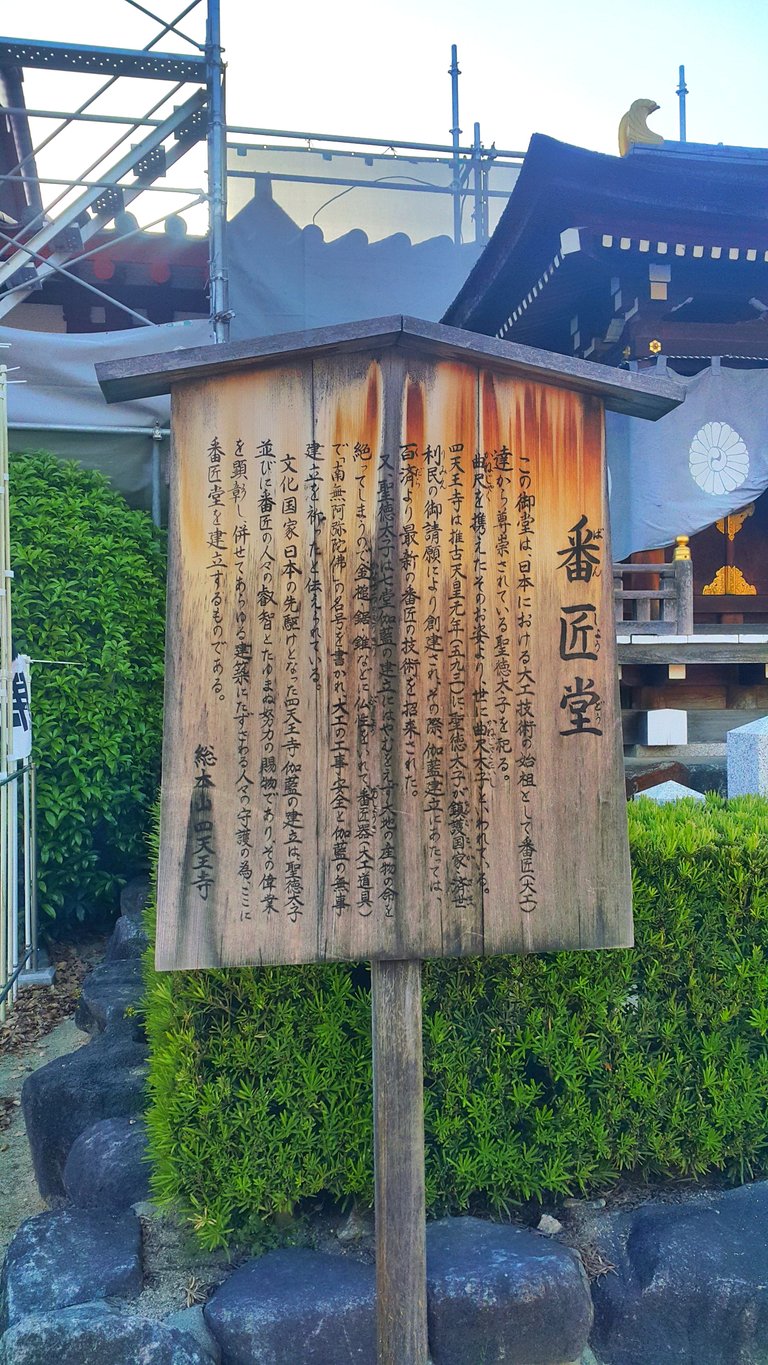 番匠堂
この御堂は、日本における大工技術の始祖として番匠(大工)
達から尊崇されている聖徳太子を祀る。
曲尺を携えたそのお姿より、世に曲尺太子といわれている。
四天王寺は推古天皇元年(五九三)に聖徳太子が鎮護国家済世
利民の御請願により創建され、その際、伽藍建立にあたっては、
百済より最新の番匠の技術を招来された。
又、聖徳太子は七堂伽藍の建立にはやむをえず大地の産物の命を
絶ってしまうので、金槌、鋸、錐などに仏性を入れて番匠器(大工道具)
で「南無阿弥陀仏」の名号を書かれ、大工の工事安全と伽藍の無事
建立を祈ったと伝えられている。
文化国家日本の先駆けとなった四天王寺伽藍の建立は、聖徳太子
並びに番匠の人々の叡智とたゆまぬ努力の賜物であり、その偉業
を顕彰し、併せてあらゆる建築にたずさわる人々の守護の為、ここに
番匠堂を建立するものである。
総本山四天王寺